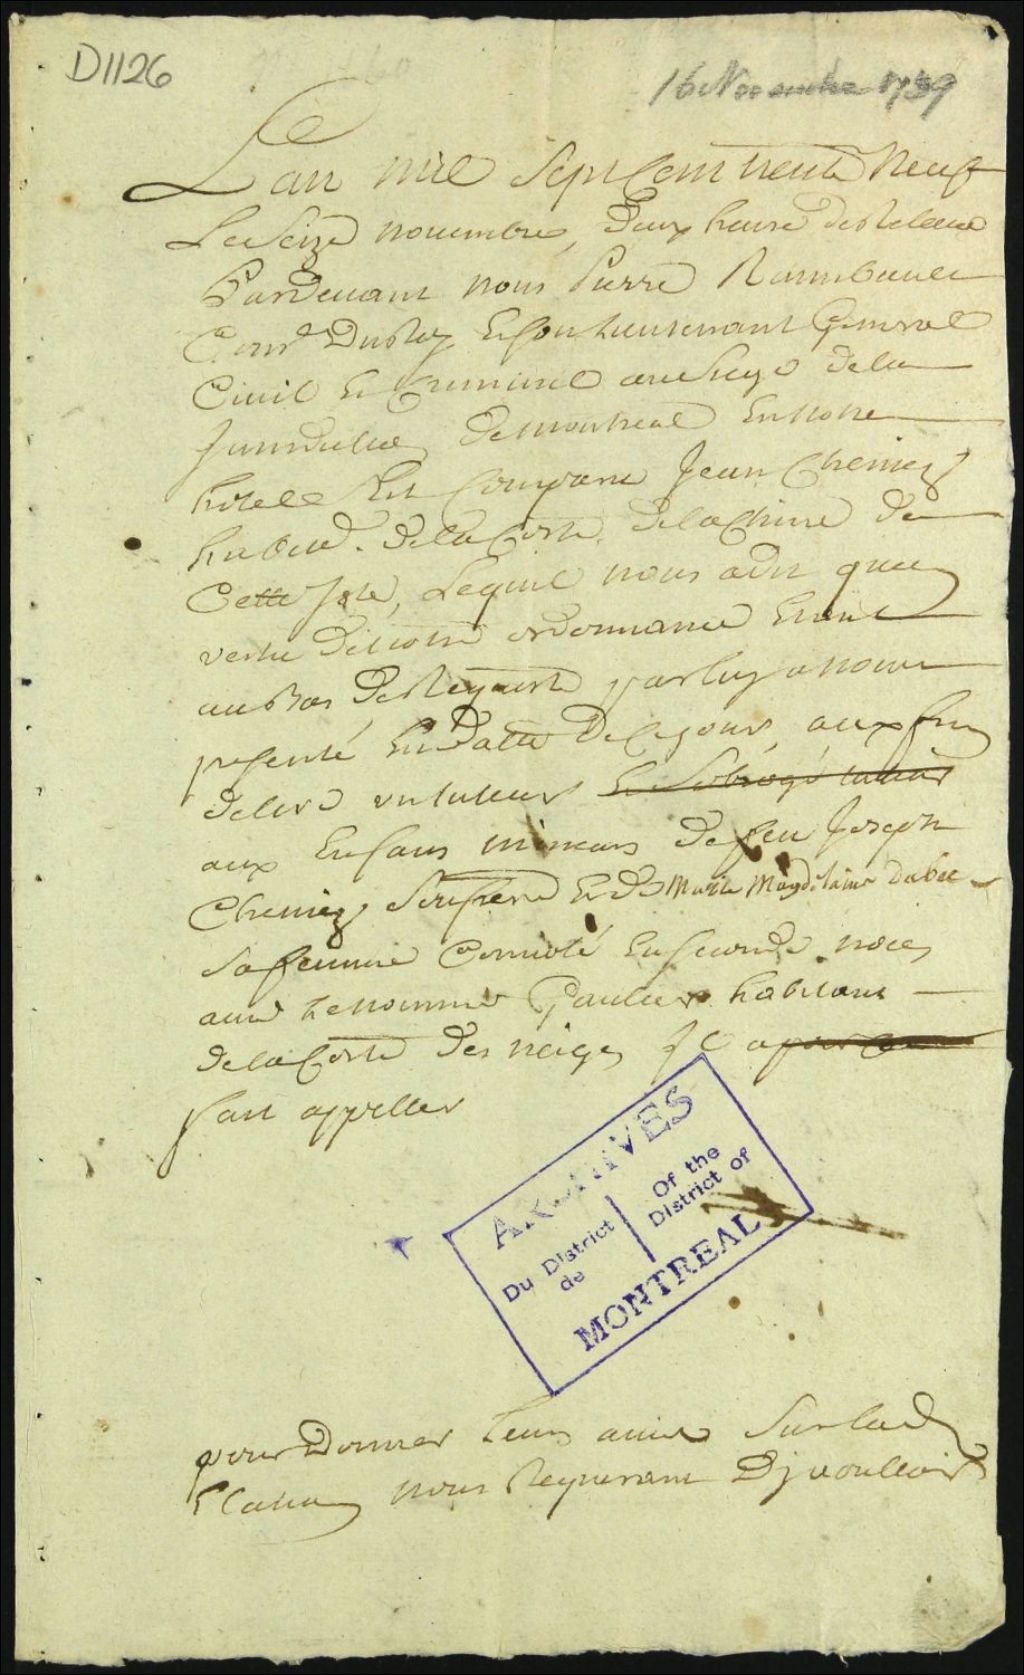 D1126
16 Novembre 1739
Lan mil Sept Cent trente Neuf
Le Seize nouembre, deux heure de Releuée
Pardeuant nous Pierre Raimbault
Coner Du Roy Et son Lieutenant General
Ciuil Et Criminel au Siege de la
Jurisdiction de montreal En notre
hotel Est Comparu Jean Chenier
habitt de la Coste de la Chine de
Cette Isle, Lequel nous a dit qu'en
vertu de notre ordonnance Etant
au bas de Requeste par luy a nous
presenté En datte de ce jour, aux fins
delire un tuteur Et Subrogé tuteur
aux Enfans mineurs de feu Joseph
Chenier Son frere Et de Marie Magdelaine Dubée
Sa femme Conuolé En seconde noces
auec Le nommé Gautier habitant
de la Coste des neiges Il a
fait appeller
ARCHIVES
Du District
de
Of the
District of
MONTREAL
pour Donner Leurs auis Sur lad
Election nous Requerant D'y vouloir